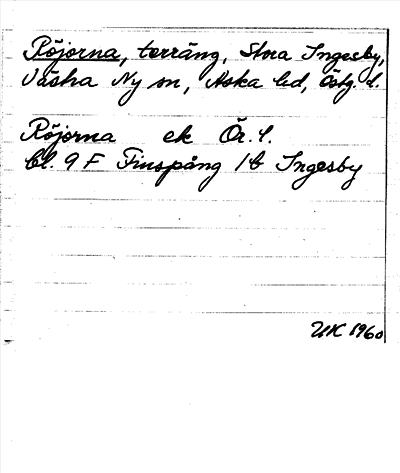 Röjorna, terräng, Stora Ingesby,
Västra Ny sn, Aska hd, Östg. l.
Röjorna ek Ör. l.
bl. 9 F Finspång 1 b Ingesby
UK 1960